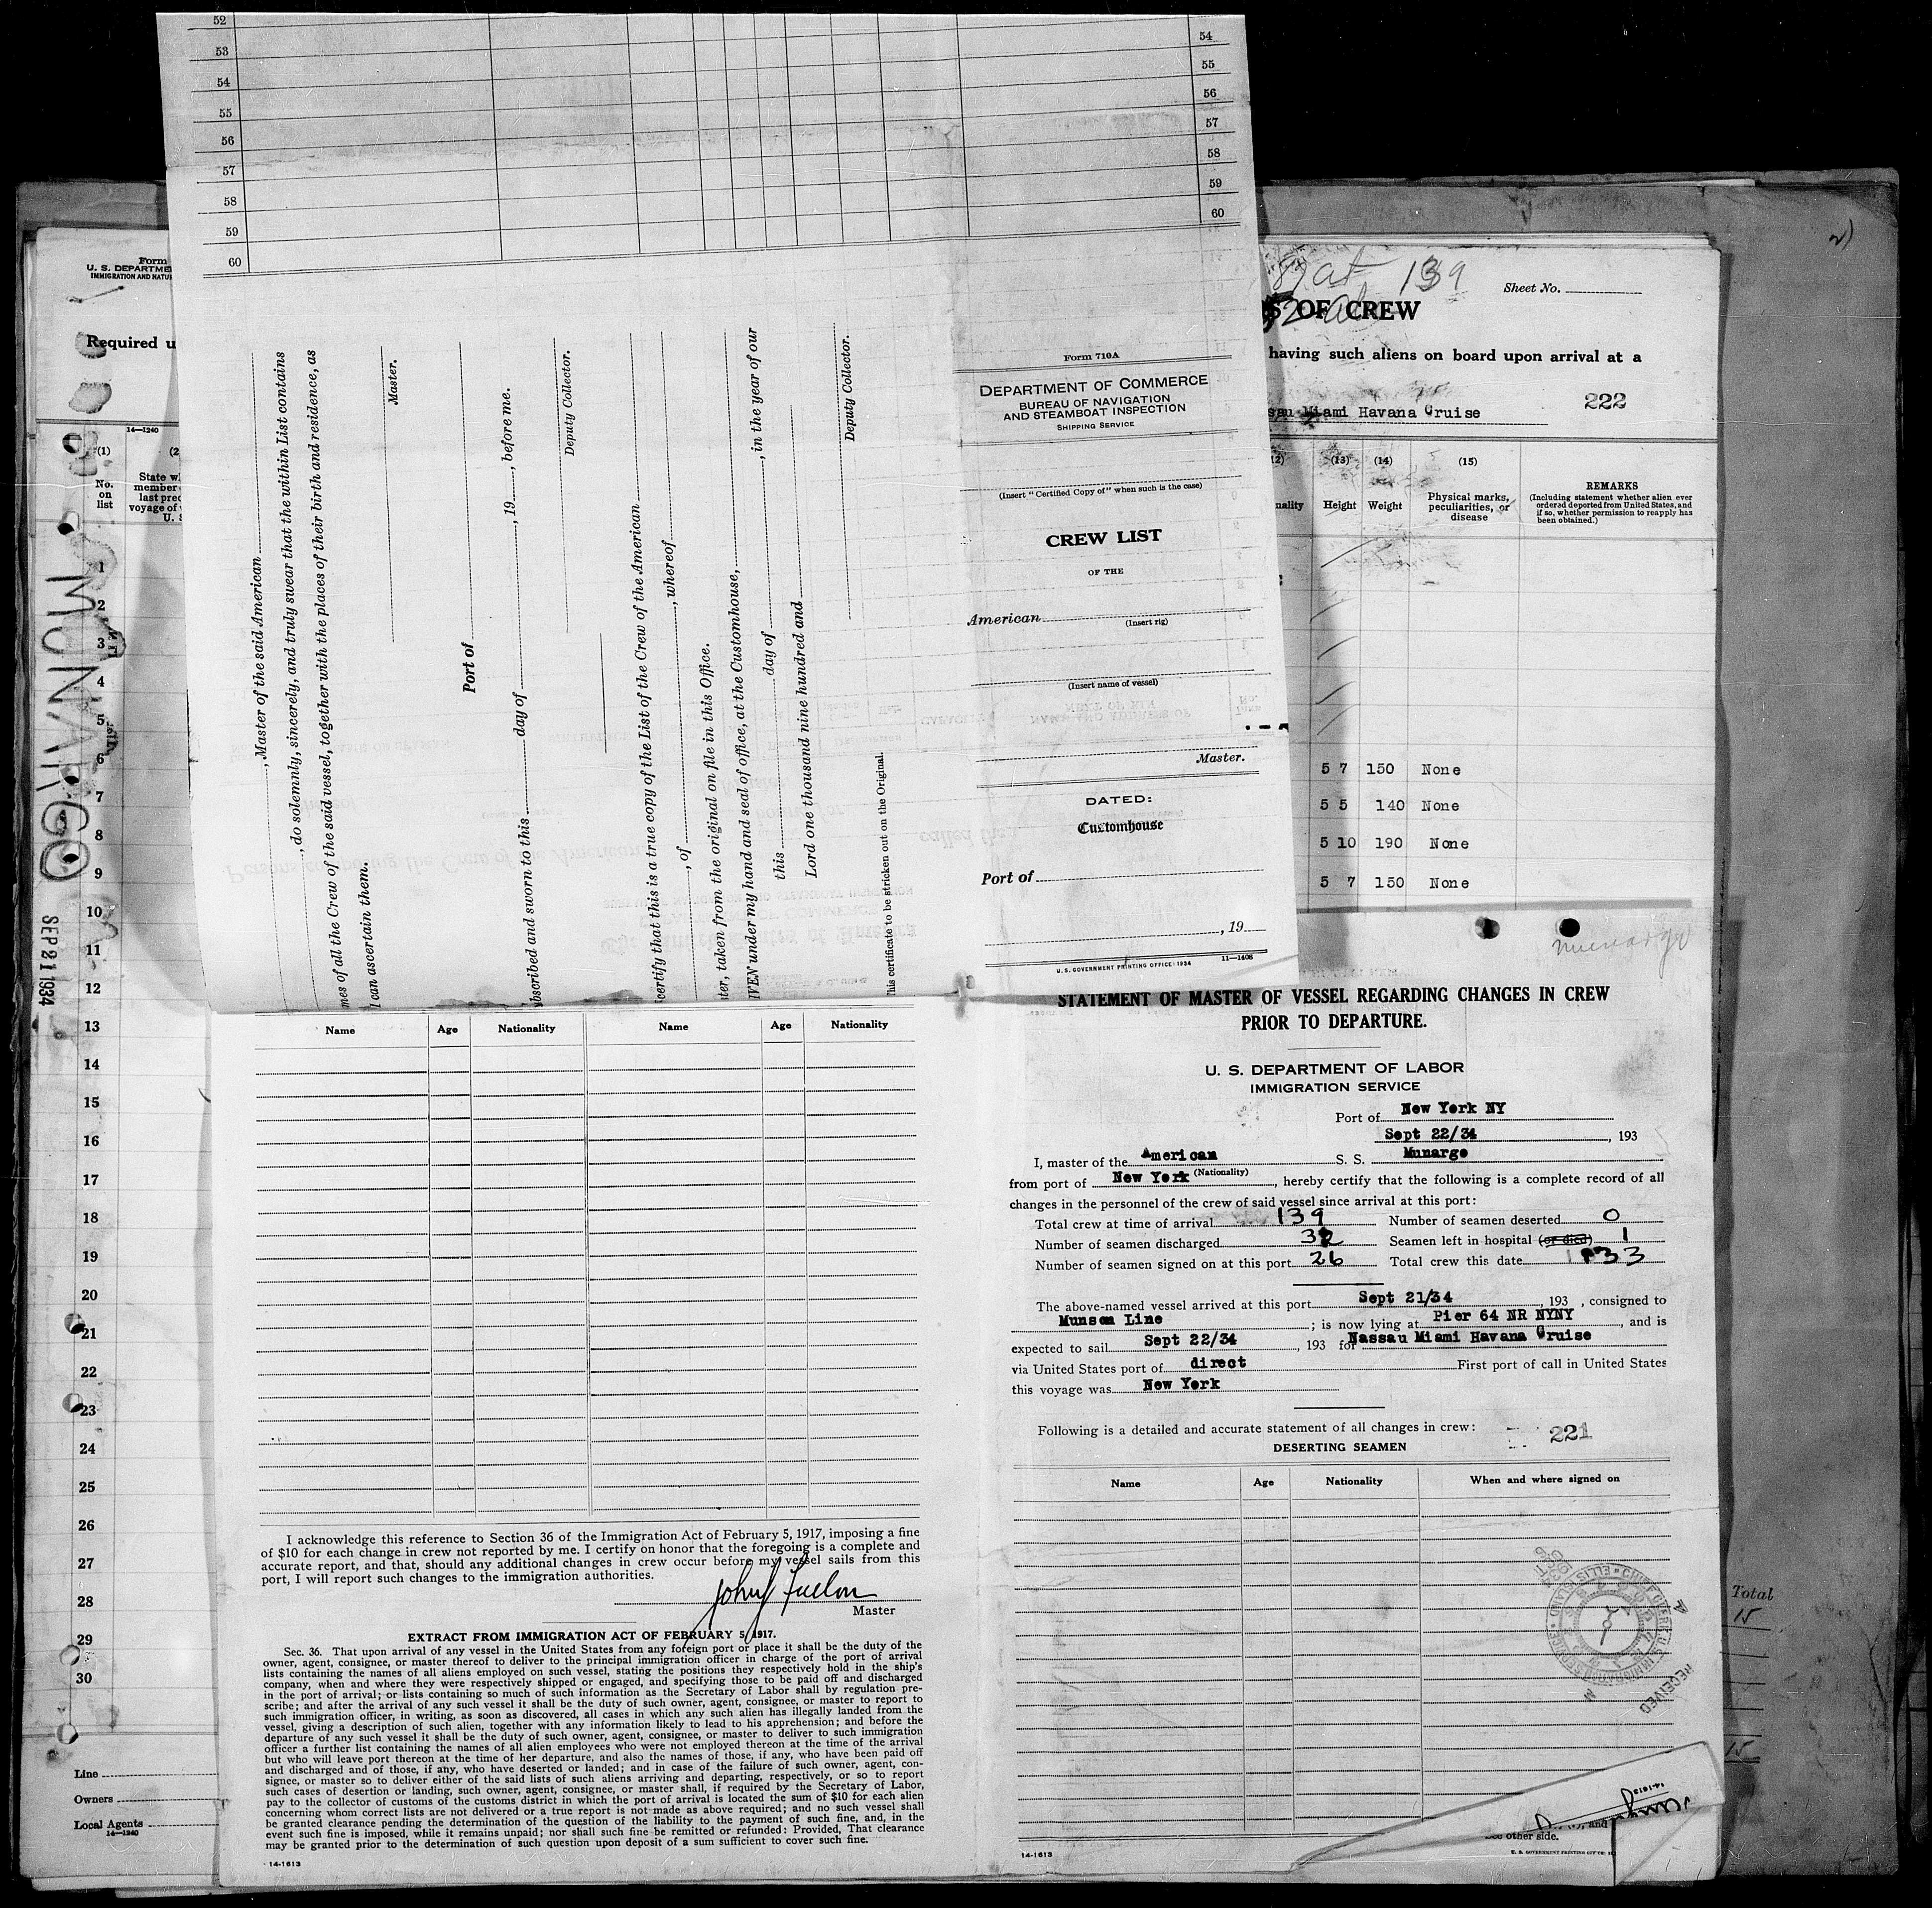 52
53
54
55
56
57
58
59
60
54
55
56
57
58
59
60
, Master of the said American
, do solemnly, sincerely, and truly swear that the within List contains
mes of all the Crew of the said vessel, together with the places of their birth and residence, as
I can ascertain them.
Master.
Port of
bscribed and sworn to this day of , 19 , before me.
Deputy Collector.
certify that this is a true copy of the List of the Crew of the American
, of , whereof
ter, taken from the original on file in this Office.
IVEN under my hand and seal of office, at the Customhouse,
this day of , in the year of our
Lord one thousand nine hundred and
Deputy Collector.
This certificate to be stricken out on the Original.
Form 710A
DEPARTMENT OF COMMERCE
BUREAU OF NAVIGATION
AND STEAMBOAT INSPECTION
SHIPPING SERVICE
(Insert "Certified Copy of" when such is the case)
CREW LIST
OF THE
American
(Insert rig)
(Insert name of vessel)
Master.
DATED:
Customhouse
Port of
, 19
U.S. GOVERNMENT PRINTING OFFICE: 1934 11—1408
Form
U. S. DEPARTME
IMMIGRATION AND NATU
Required u
14—1240
(1)
No.
on
list
(2
State w
member
last prec
voyage of
U. S
1
2
3
4
5
6
7
8
9
10
11
12
13
14
15
16
17
18
19
20
21
22
23
24
25
26
27
28
29
30
MUNARGO
SEP 21 1934
Line
Owners
Local Agents
14—1240
at 139
Sheet No.
S OF CREW
having such aliens on board upon arrival at a
sau Miami Havana Cruise
222
12) (13) (14) (15)
nality Height Weight
Physical marks,
peculiarities, or
disease
REMARKS
(Including statement whether alien ever
ordered deported from United States, and
if so, whether permission to reapply has
been obtained.)
5 7 150 None
5 5 140 None
5 10 190 None
5 7 150 None
Munargo
STATEMENT OF MASTER OF VESSEL REGARDING CHANGES IN CREW
PRIOR TO DEPARTURE.
U. S. DEPARTMENT OF LABOR
IMMIGRATION SERVICE
Port of New York NY
Sept 22/34 , 193
I, master of the American S. S. Munargo
from port of New York (Nationality) , hereby certify that the following is a complete record of all
changes in the personnel of the crew of said vessel since arrival at this port:
Total crew at time of arrival 139 Number of seamen deserted 0
Number of seamen discharged 32 Seamen left in hospital (or died) 1
Number of seamen signed on at this port 26 Total crew this date 133
The above-named vessel arrived at this port Sept 21/34 , 193 , consigned to
Munson Line ; is now lying at Pier 64 NR NYNY , and is
expected to sail Sept 22/34 , 193 for Nassau Miami Havana Cruise
via United States port of direct First port of call in United States
this voyage was New York
Following is a detailed and accurate statement of all changes in crew:
221
DESERTING SEAMEN
Name Age Nationality When and where signed on
RECEIVED
See other side.
14-1613
14-1613
Name Age Nationality Name Age Nationality
I acknowledge this reference to Section 36 of the Immigration Act of February 5, 1917, imposing a fine
of $10 for each change in crew not reported by me. I certify on honor that the foregoing is a complete and
accurate report, and that, should any additional changes in crew occur before my vessel sails from this
port, I will report such changes to the immigration authorities.
Master
EXTRACT FROM IMMIGRATION ACT OF FEBRUARY 5, 1917.
Sec. 36. That upon arrival of any vessel in the United States from any foreign port or place it shall be the duty of the
owner, agent, consignee, or master thereof to deliver to the principal immigration officer in charge of the port of arrival
lists containing the names of all aliens employed on such vessel, stating the positions they respectively hold in the ship's
company, when and where they were respectively shipped or engaged, and specifying those to be paid off and discharged
in the port of arrival; or lists containing so much of such information as the Secretary of Labor shall by regulation pre-
scribe; and after the arrival of any such vessel it shall be the duty of such owner, agent, consignee, or master to report to
such immigration officer, in writing, as soon as discovered, all cases in which any such alien has illegally landed from the
vessel, giving a description of such alien, together with any information likely to lead to his apprehension; and before the
departure of any such vessel it shall be the duty of such owner, agent, consignee, or master to deliver to such immigration
officer a further list containing the names of all alien employees who were not employed thereon at the time of the arrival
but who will leave port thereon at the time of her departure, and also the names of those, if any, who have been paid off
and discharged and of those, if any, who have deserted or landed; and in case of the failure of such owner, agent, con-
signee, or master so to deliver either of the said lists of such aliens arriving and departing, respectively, or so to report
such cases of desertion or landing, such owner, agent, consignee, or master shall, if required by the Secretary of Labor,
pay to the collector of customs of the customs district in which the port of arrival is located the sum of $10 for each alien
concerning whom correct lists are not delivered or a true report is not made as above required; and no such vessel shall
be granted clearance pending the determination of the question of the liability to the payment of such fine, and, in the
event such fine is imposed, while it remains unpaid; nor shall such fine be remitted or refunded: Provided, That clearance
may be granted prior to the determination of such question upon deposit of a sum sufficient to cover such fine.
14-1613
Total
15
15